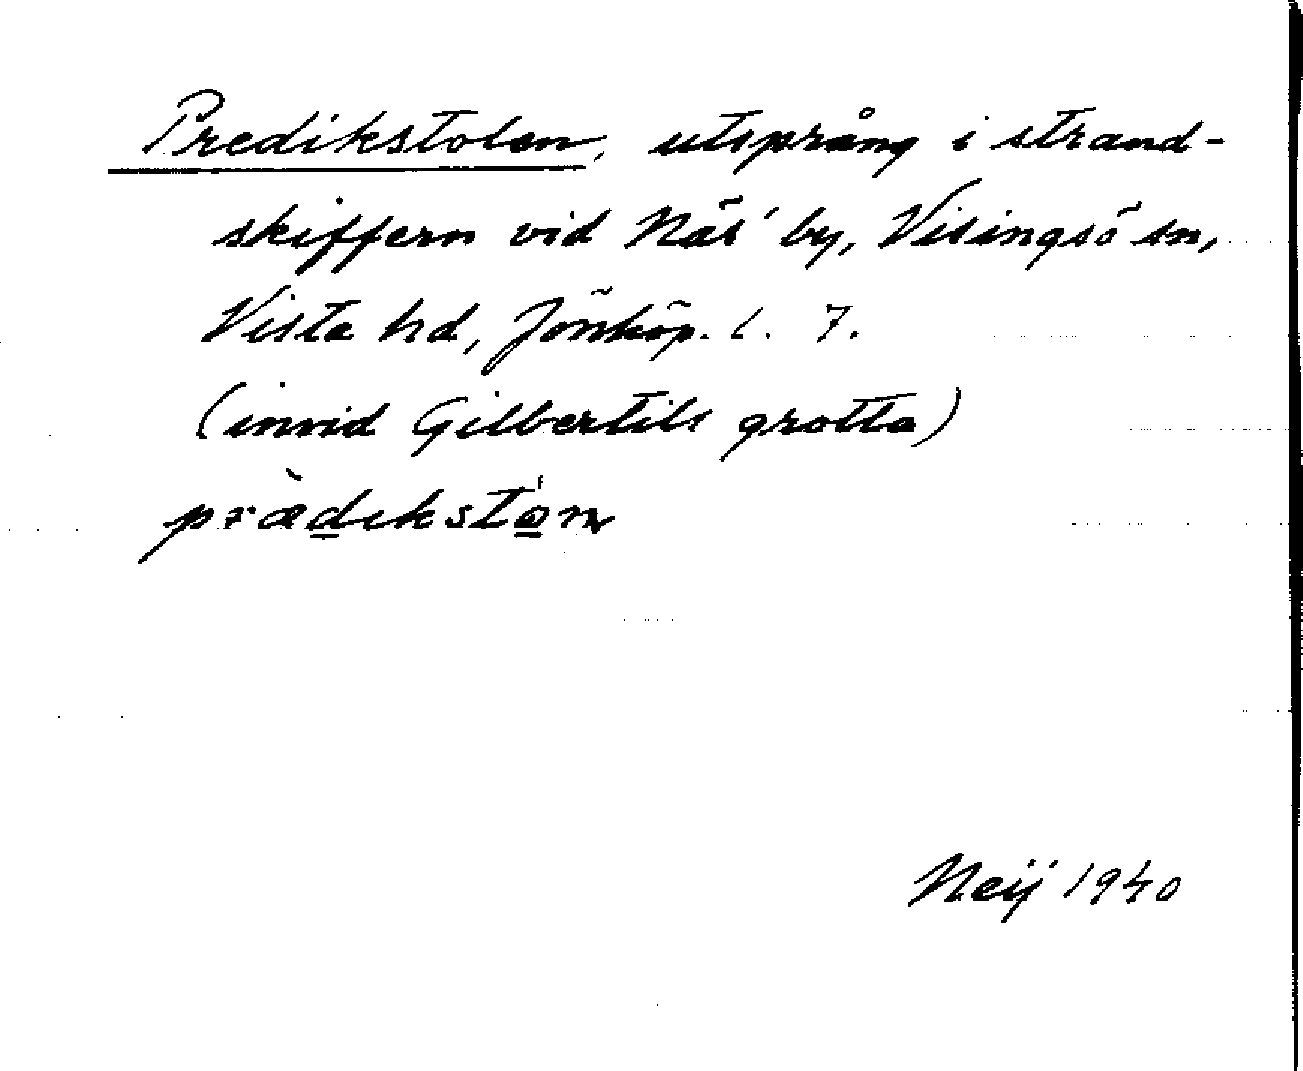 Predikstolen, utsprång i strand-
skiffern vid Näs' by, Visingsö sn,
Vista hd, Jönköp. l. 7.
(invid Gilbertils grotta)
prædikston
Neij 1940